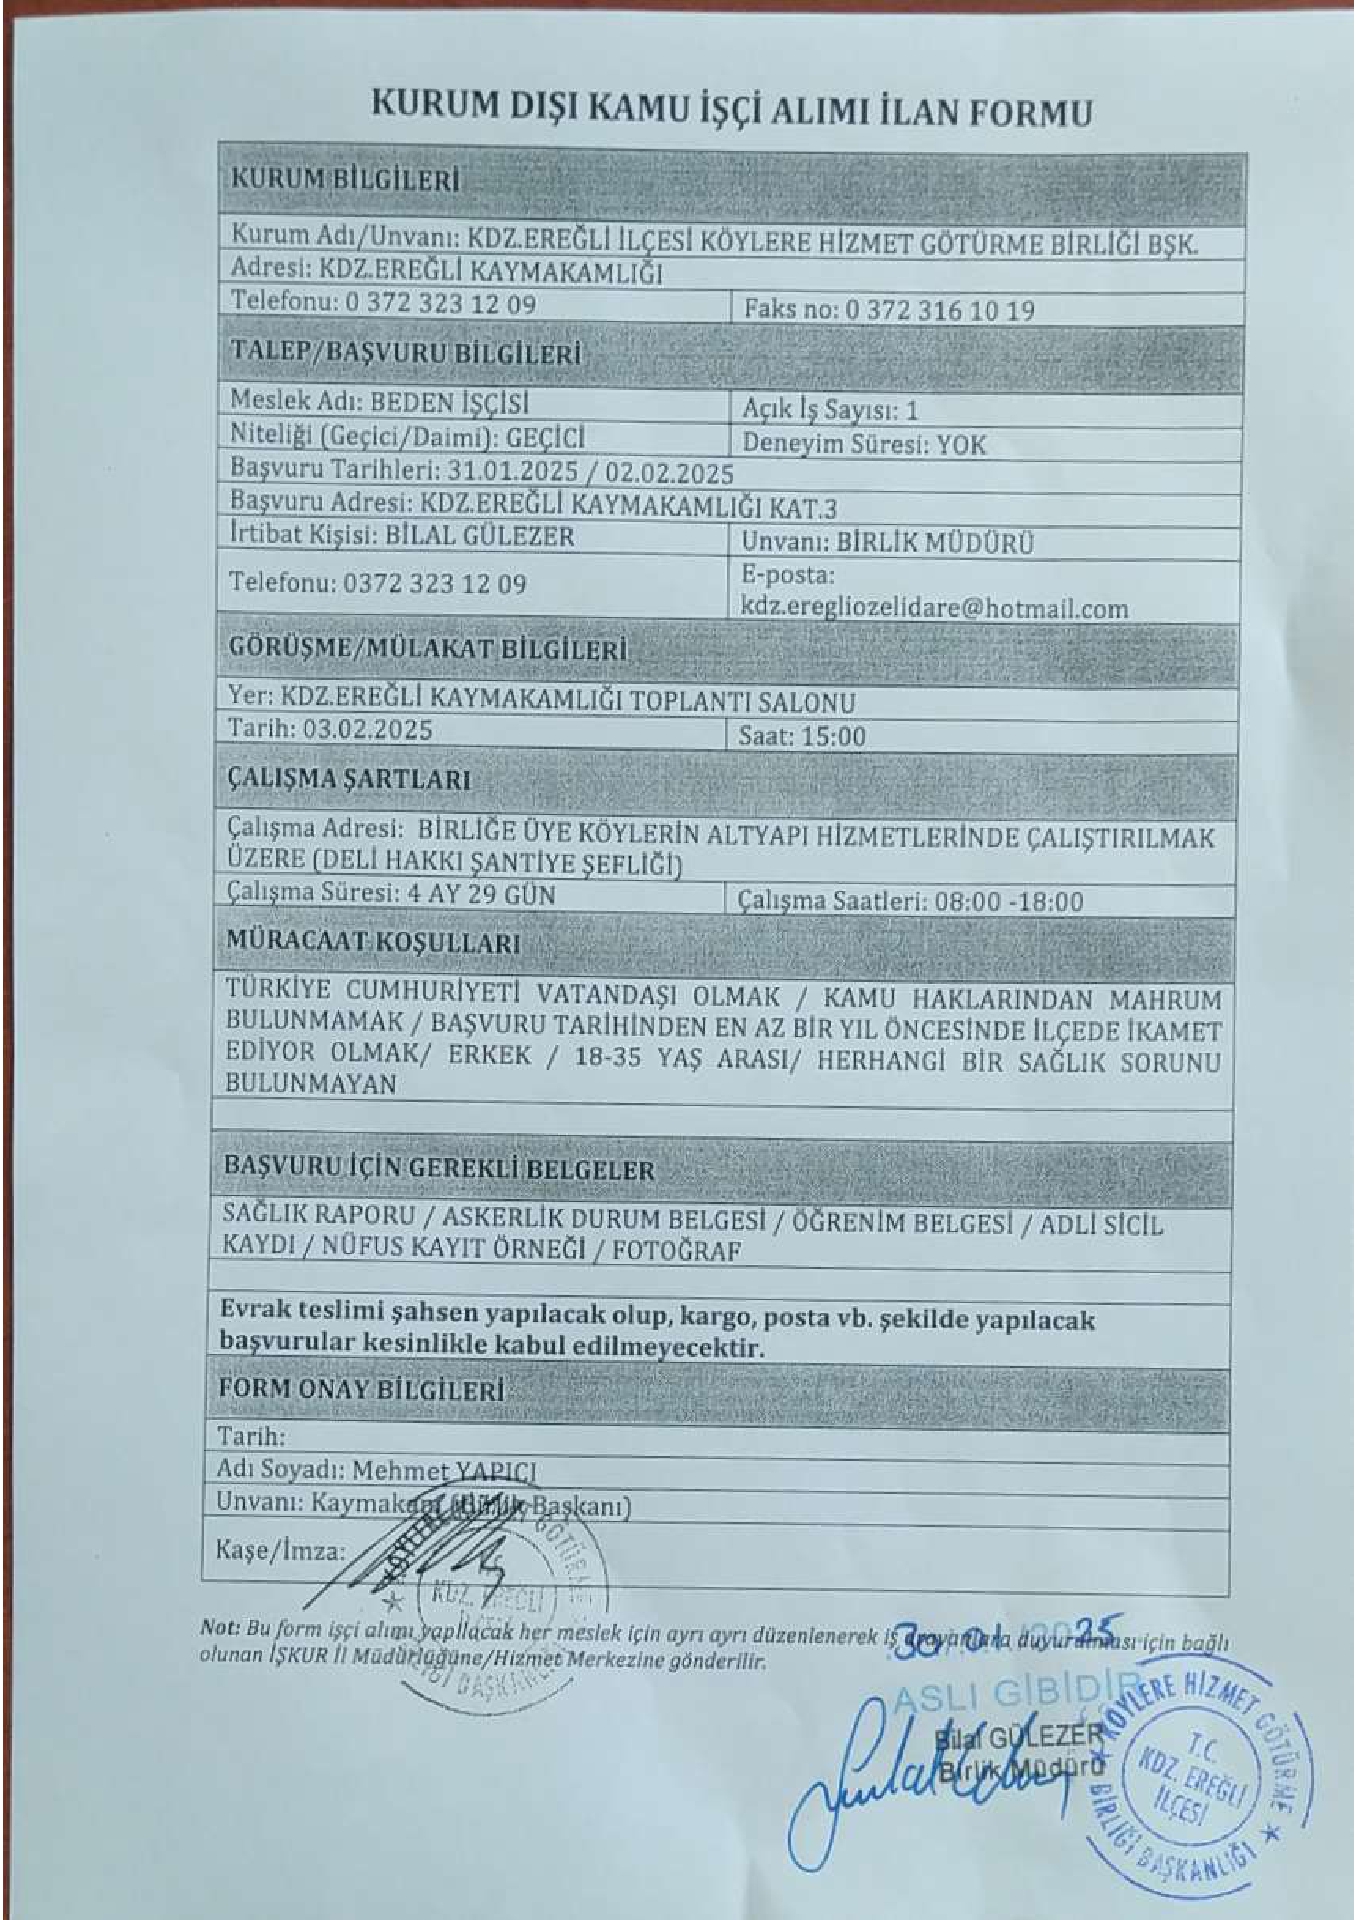 KURUM DIŞI KAMU İŞÇİ ALIMI İLAN FORMU
KURUM BİLGİLERİ
Kurum Adı/Unvanı: KDZ.EREĞLİ İLÇESİ KÖYLERE HİZMET GÖTÜRME BİRLİĞİ BŞK.
Adresi: KDZ.EREĞLİ KAYMAKAMLIĞI
Telefonu: 0 372 323 12 09 Faks no: 0 372 316 10 19
TALEP/BAŞVURU BİLGİLERİ
Meslek Adı: BEDEN İŞÇİSİ Açık İş Sayısı: 1
Niteliği (Geçici/Daimi): GEÇİCİ Deneyim Süresi: YOK
Başvuru Tarihleri: 31.01.2025 / 02.02.2025
Başvuru Adresi: KDZ.EREĞLİ KAYMAKAMLIĞI KAT.3
İrtibat Kişisi: BİLAL GÜLEZER Unvanı: BİRLİK MÜDÜRÜ
Telefonu: 0372 323 12 09 E-posta:
kdz.eregliozelidare@hotmail.com
GÖRÜŞME/MÜLAKAT BİLGİLERİ
Yer: KDZ.EREĞLİ KAYMAKAMLIĞI TOPLANTI SALONU
Tarih: 03.02.2025 Saat: 15:00
ÇALIŞMA ŞARTLARI
Çalışma Adresi: BİRLİĞE ÜYE KÖYLERİN ALTYAPI HİZMETLERİNDE ÇALIŞTIRILMAK
ÜZERE (DELİ HAKKI ŞANTİYE ŞEFLİĞİ)
Çalışma Süresi: 4 AY 29 GÜN Çalışma Saatleri: 08:00 -18:00
MÜRACAAT KOŞULLARI
TÜRKİYE CUMHURİYETİ VATANDAŞI OLMAK / KAMU HAKLARINDAN MAHRUM
BULUNMAMAK / BAŞVURU TARİHİNDEN EN AZ BİR YIL ÖNCESİNDE İLÇEDE İKAMET
EDİYOR OLMAK/ ERKEK / 18-35 YAŞ ARASI/ HERHANGİ BİR SAĞLIK SORUNU
BULUNMAYAN
BAŞVURU İÇİN GEREKLİ BELGELER
SAĞLIK RAPORU / ASKERLİK DURUM BELGESİ / ÖĞRENİM BELGESİ / ADLİ SİCİL
KAYDI / NÜFUS KAYIT ÖRNEĞİ / FOTOĞRAF
Evrak teslimi şahsen yapılacak olup, kargo, posta vb. şekilde yapılacak
başvurular kesinlikle kabul edilmeyecektir.
FORM ONAY BİLGİLERİ
Tarih:
Adı Soyadı: Mehmet YAPICI
Unvanı: Kaymakam (Birlik Başkanı)
Kaşe/İmza:
KDZ. EREĞLİ
İLÇESİ
Not: Bu form işçi alımı yapılacak her meslek için ayrı ayrı düzenlenerek iş arayanlara duyurulması için bağlı
olunan İŞKUR İl Müdürlüğüne/Hizmet Merkezine gönderilir.
30.01.2025
ASLI GİBİDİR
Bilal GÜLEZER
Birlik Müdürü
KÖYLERE HİZMET GÖTÜRME
BİRLİĞİ BAŞKANLIĞI
T.C.
KDZ. EREĞLİ
İLÇESİ